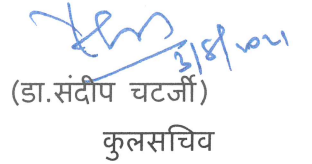 3/8/2021
(डा.संदीप चटर्जी)
कुलसचिव